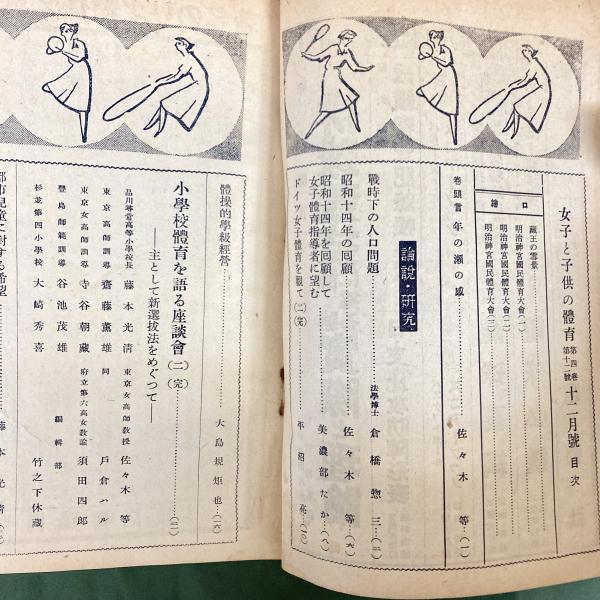 女子と子供の體育 第四卷第十二號 十二月號 目次
口繪
藏王の雪景
明治神宮國民體育大會(一)
明治神宮國民體育大會(二)
卷頭言 年の瀬の感 佐々木等(一)
論說・硏究
戰時下の人口問題 法學博士 倉橋惣三(二)
昭和十四年の回顧 佐々木等(六)
昭和十四年を回顧して女子體育指導者に望む 美濃部たか(八)
ドイツ女子體育を觀て(二)(完) 平沼亮(一〇)
體操的學級經營 大島規矩也(一六)
小學校體育を語る座談會(二)(完)(三)
―主として新選拔法をめぐつて―
品川專當高等小學校長 藤本光淸
東京女高師敎授 佐々木等
東京高師訓導 齋藤薰雄
同 戶倉ハル
東京女高師訓導 寺谷朝藏
府立第六高女敎諭 須田四郎
豐島師範訓導 谷池茂雄
杉並第四小學校 大崎秀喜
編輯部 竹之下休藏
都市兒童に對する希望 藤本光淸